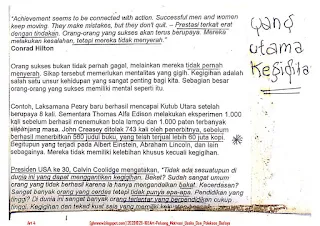 "Achievement seems to be connected with action. Successful men and women
keep moving. They make mistakes, but they don't quit. – Prestasi terkait erat
dengan tindakan. Orang-orang yang sukses akan terus berupaya. Mereka
melakukan kesalahan, tetapi mereka tidak menyerah."
Conrad Hilton
Orang sukses bukan tidak pernah gagal, melainkan mereka tidak pernah
menyerah. Sikap tersebut memerlukan mentalitas yang gigih. Kegigihan adalah
salah satu unsur kehidupan yang sangat penting bagi kita. Sebagian besar
orang-orang yang sukses memiliki mental seperti itu.
Contoh, Laksamana Peary baru berhasil mencapai Kutub Utara setelah
berupaya 8 kali. Sementara Thomas Alfa Edison melakukan eksperimen 1.000
kali sebelum berhasil menemukan bola lampu dan 1.000 paten terbanyak
sepanjang masa. John Creasey ditolak 743 kali oleh penerbitnya, sebelum
berhasil menerbitkan 560 judul buku, yang telah terjual lebih 60 juta kopi.
Begitupun yang terjadi pada Albert Einstein, Abraham Lincoln, dan lain
sebagainya. Mereka tidak memiliki kelebihan khusus kecuali kegigihan.
Presiden USA ke 30, Calvin Coolidge mengatakan, "Tidak ada sesuatupun di
dunia ini yang dapat menggantikan kegigihan. Bakat? Sudah sangat umum
orang yang tidak berhasil karena ia hanya mengandalkan bakat. Kecerdasan?
Sangat banyak orang yang cerdas tetapi tidak punya apa-apa. Pendidikan yang
tinggi? Di dunia ini sangat banyak orang terlantar yang berpendidikan cukup
tinggi. Kegigihan dan tekad kuat saja yang
yang
utama
Kegigiha
Art 4